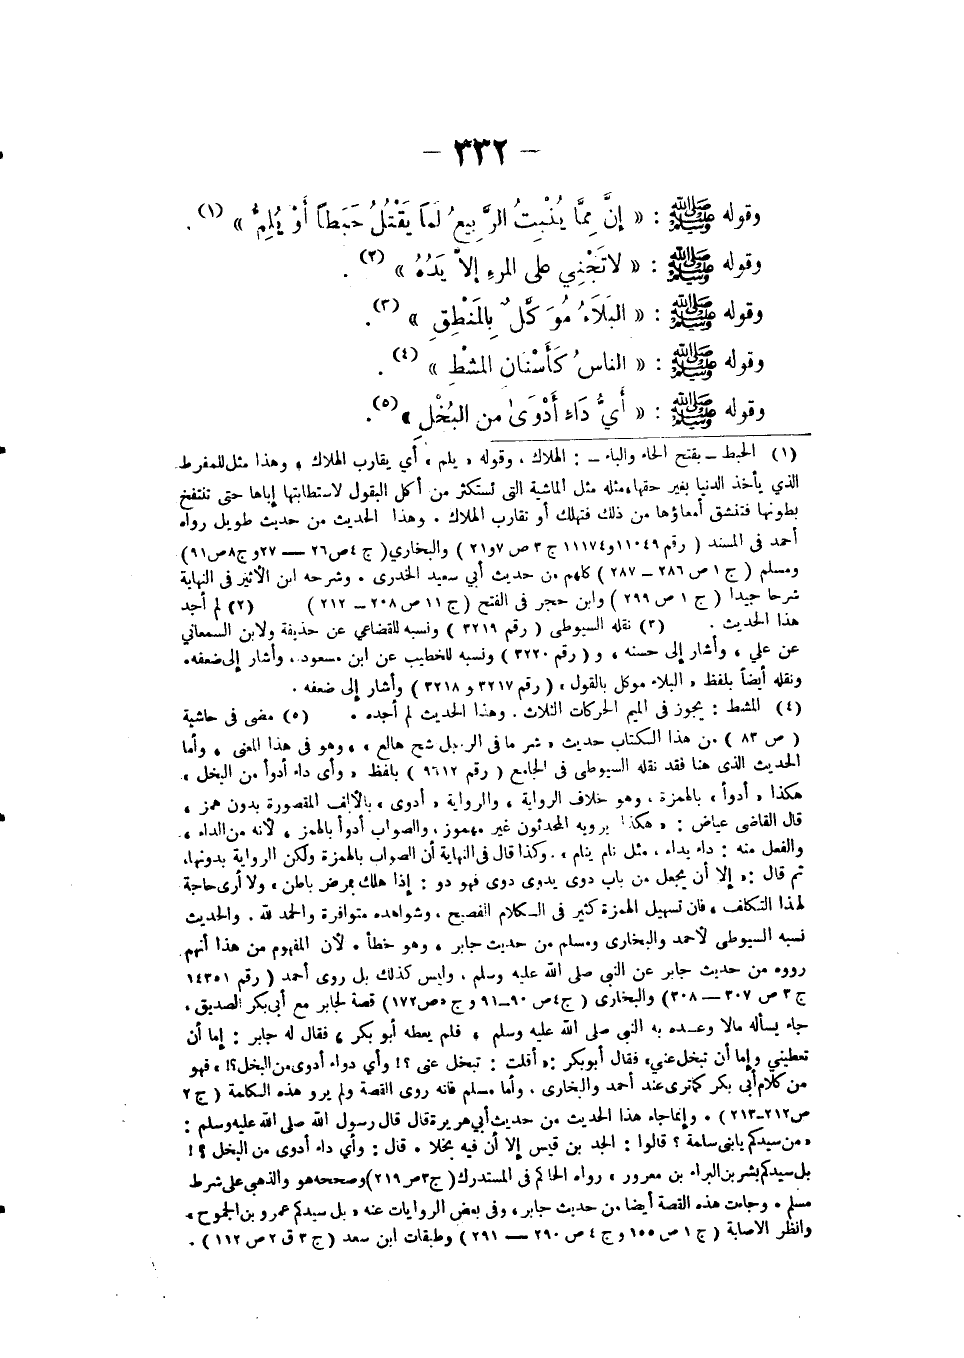 — ٣٣٢ —
وقوله ﷺ : « إنَّ مِمَّا يُنْبِتُ الرَّبِيعُ لَمَا يَقْتُلُ حَبَطاً أَوْ يُلِمُّ » (١) .
وقوله ﷺ : « لا تَجْنِي على المرءِ إلاَّ يَدُهُ » (٢) .
وقوله ﷺ : « البَلَاءُ مُوَكَّلٌ بِالمَنْطِقِ » (٣) .
وقوله ﷺ : « الناسُ كَأَسْنَانِ المشْطِ » (٤) .
وقوله ﷺ : « أَيُّ دَاءٍ أَدْوَىٰ من البُخْلِ » (٥) .
(١) الحبط ــ بفتح الحاء والباء ــ : الهلاك ، وقوله « يلم » أي يقارب الهلاك ، وهذا مثل للمفرط
الذي يأخذ الدنيا بغير حقها ، مثله مثل الماشية التى تستكثر من أكل البقول لاستطابتها إياها حتى تنتفخ
بطونها فتنشق أمعاؤها من ذلك فتهلك أو تقارب الهلاك . وهذا الحديث من حديث طويل رواه
أحمد فى المسند ( رقم ١١٠٤٩ و ١١١٧٤ ج ٣ ص ٧ و ٢١ ) والبخاري ( ج ٤ ص ٢٦ — ٢٧ و ج ٨ ص ٩١ )
ومسلم ( ج ١ ص ٢٨٦ — ٢٨٧ ) كلهم من حديث أبي سعيد الخدرى . وشرحه ابن الأثير فى النهاية
شرحا جيدا ( ج ١ ص ٢٩٩ ) وابن حجر فى الفتح ( ج ١١ ص ٢٠٨ — ٢١٢ ) (٢) لم أجد
هذا الحديث . (٣) نقله السيوطى ( رقم ٣٢١٩ ) ونسبه للقضاعي عن حذيفة ولابن السمعاني
عن علي ، وأشار إلى حسنه ، و ( رقم ٣٢٢٠ ) ونسبه للخطيب عن ابن مسعود ، وأشار إلى ضعفه .
ونقله أيضاً بلفظ « البلاء موكل بالقول » ( رقم ٣٢١٧ و ٣٢١٨ ) وأشار إلى ضعفه .
(٤) المشط : يجوز فى الميم الحركات الثلاث . وهذا الحديث لم أجده . (٥) مضى فى حاشية
( ص ٨٣ ) من هذا الكتاب حديث « شر ما فى الرجل شح هالع » ، وهو فى هذا المعنى ، وأما
الحديث الذى هنا فقد نقله السيوطى فى الجامع ( رقم ٩٦١٢ ) بلفظ « وأى داء أدوأ من البخل »
هكذا « أدوأ » بالهمزة ، وهو خلاف الرواية ، والرواية « أدوى » بالألف المقصورة بدون همز ،
قال القاضى عياض : « هكذا يرويه المحدثون غير مهموز ، والصواب أدوأ بالهمز ، لأنه من الداء ،
والفعل منه : داء يداء ، مثل نام ينام » . وكذا قال فى النهاية أن الصواب بالهمزة ولكن الرواية بدونها ،
ثم قال : « إلا أن يجعل من باب دوى يدوى دوى فهو دو : إذا هلك بمرض باطن » ولا أرى حاجة
لهذا التكلف ، فان تسهيل الهمزة كثير فى الكلام الفصيح ، وشواهده متوافرة والحمد لله . والحديث
نسبه السيوطى لأحمد والبخارى ومسلم من حديث جابر ، وهو خطأ . لأن المفهوم من هذا أنهم
رووه من حديث جابر عن النبي صلى الله عليه وسلم ، وليس كذلك بل روى أحمد ( رقم ١٤٣٥١
ج ٣ ص ٣٠٧ — ٣٠٨ ) والبخارى ( ج ٤ ص ٩٠ — ٩١ و ج ٥ ص ١٧٢ ) قصة لجابر مع أبي بكر الصديق ،
جاء يسأله مالا وعده به النبى صلى الله عليه وسلم ، فلم يعطه أبو بكر ، فقال له جابر : إما أن
تعطيني وإما أن تبخل عني ، فقال أبو بكر : « أقلت : تبخل عنى ؟! وأي دواء أدوى من البخل ؟! » فهو
من كلام أبى بكر كما ترى عند أحمد والبخارى ، وأما مسلم فانه روى القصة ولم يرو هذه الكلمة ( ج ٢
ص ٢١٢ — ٢١٣ ) . وإنما جاء هذا الحديث من حديث أبي هريرة قال قال رسول الله صلى الله عليه وسلم :
« من سيدكم يا بنى سلمة ؟ قالوا : الجد بن قيس إلا أن فيه بخلا . قال : وأي داء أدوى من البخل ؟ !
بل سيدكم بشر بن البراء بن معرور » رواه الحاكم فى المستدرك ( ج ٣ ص ٢١٩ ) وصححه هو والذهبي على شرط
مسلم . وجاءت هذه القصة أيضا من حديث جابر ، وفى بعض الروايات عنه « بل سيدكم عمرو بن الجموح »
وانظر الاصابة ( ج ١ ص ١٥٥ و ج ٤ ص ٢٩٠ — ٢٩١ ) وطبقات ابن سعد ( ج ٣ ق ٢ ص ١١٢ ) .